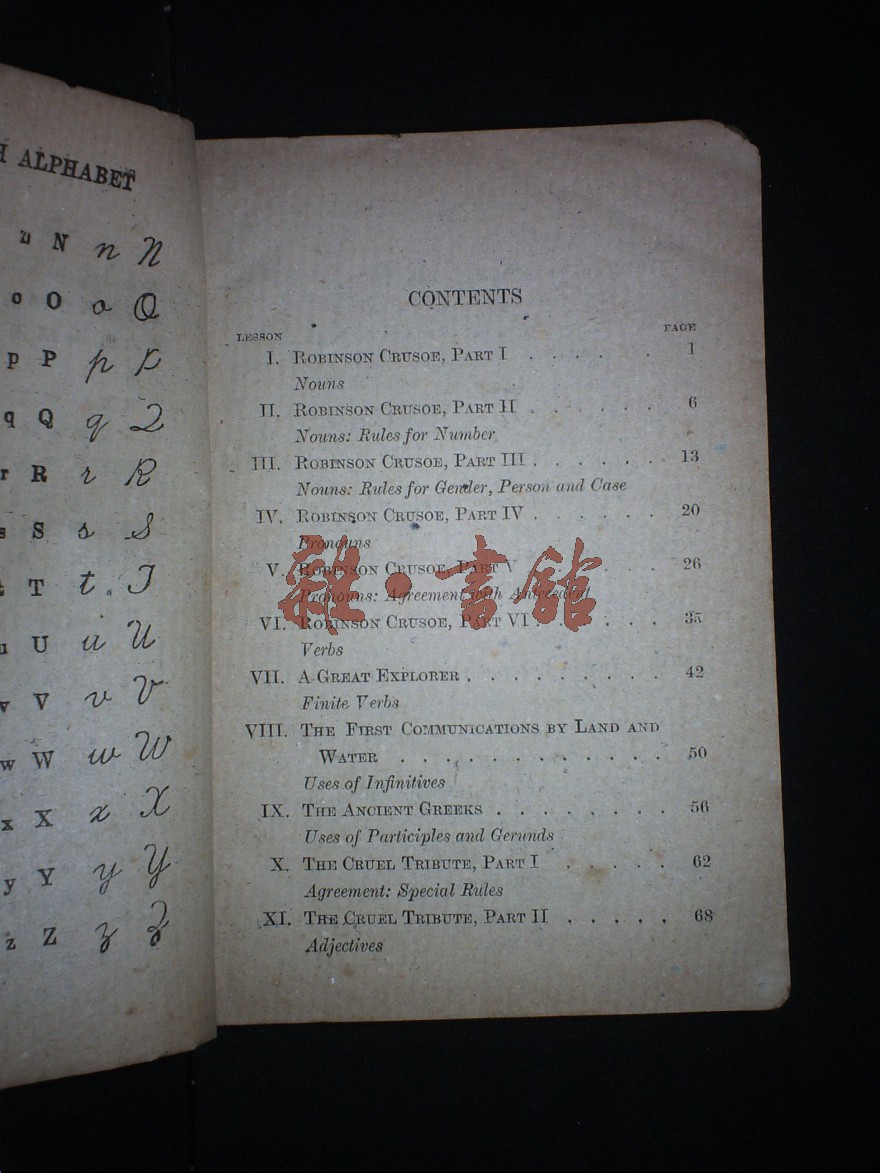 H ALPHABET
n N n N
o O o O
p P p P
q Q q Q
r R r R
s S s S
t T t T
u U u U
v V v V
w W w W
x X x X
y Y y Y
z Z z Z
CONTENTS
LESSON PAGE
I. ROBINSON CRUSOE, PART I . . . . . . 1
Nouns
II. ROBINSON CRUSOE, PART II . . . . . . 6
Nouns: Rules for Number
III. ROBINSON CRUSOE, PART III . . . . . . 13
Nouns: Rules for Gender, Person and Case
IV. ROBINSON CRUSOE, PART IV . . . . . . 20
Pronouns
V. ROBINSON CRUSOE, PART V . . . . . . 26
Pronouns: Agreement with Antecedent
VI. ROBINSON CRUSOE, PART VI . . . . . . 35
Verbs
VII. A GREAT EXPLORER . . . . . . . . . 42
Finite Verbs
VIII. THE FIRST COMMUNICATIONS BY LAND AND
WATER . . . . . . . . . . . . 50
Uses of Infinitives
IX. THE ANCIENT GREEKS . . . . . . . . 56
Uses of Participles and Gerunds
X. THE CRUEL TRIBUTE, PART I . . . . . 62
Agreement: Special Rules
XI. THE CRUEL TRIBUTE, PART II . . . . . 68
Adjectives
雜·書館